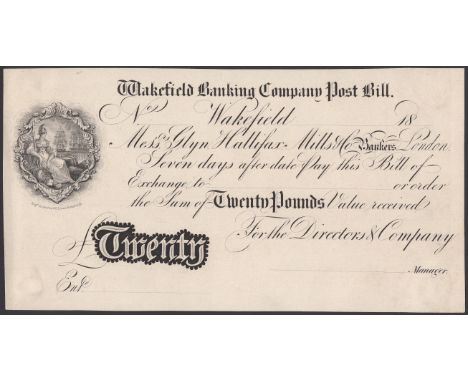 Wakefield Banking Company Post Bill.
No Wakefield 18
Messrs Glyn Hallifax Mills & Co Bankers London
Seven days after date Pay this Bill of
Exchange to or order
the Sum of Twenty Pounds Value received
For the Directors & Company
£ Twenty
Manager.
Entd